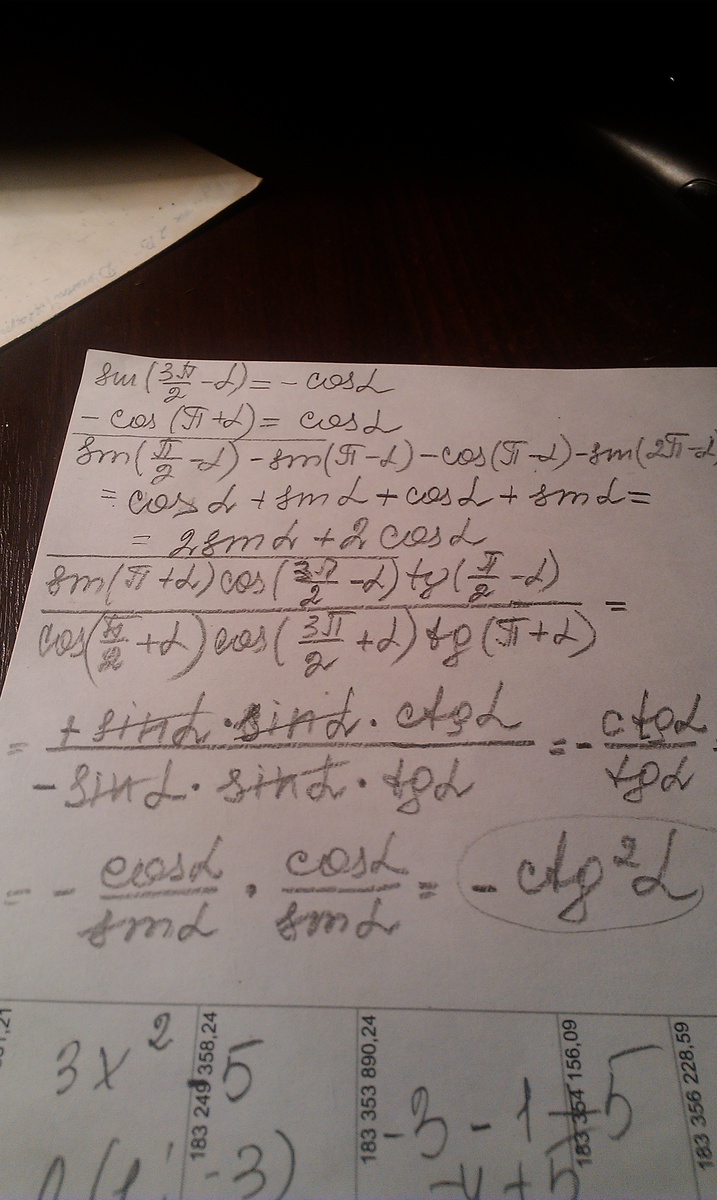 sin(3π/2 - α) = - cosα
- cos(π + α) = cosα
sin(π/2 - α) - sin(π - α) - cos(π - α) - sin(2π - α)
= cosα + sinα + cosα + sinα =
= 2sinα + 2cosα
sin(π + α) cos(3π/2 - α) tg(π/2 - α)
cos(π/2 + α) cos(3π/2 + α) tg(π + α) =
= + sinα · sinα · ctgα / - sinα · sinα · tgα = - ctgα / tgα
= - cosα / sinα · cosα / sinα = - ctg²α
3x² 5
183 249 358,24
183 353 890,24
183 354 156,09
183 356 228,59